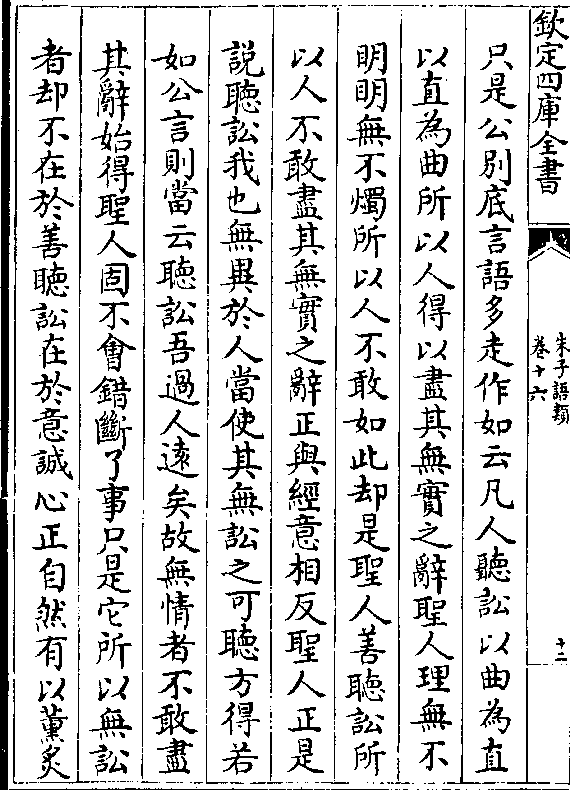 欽定四庫全書
朱子語類
卷十六
十二
只是公别底言語多走作如云凡人聽訟以曲為直
以直為曲所以人得以盡其無實之辭聖人理無不
明明無不燭所以人不敢如此却是聖人善聽訟所
以人不敢盡其無實之辭正與經意相反聖人正是
說聽訟我也無異於人當使其無訟之可聽方得若
如公言則當云聽訟吾過人遠矣故無情者不敢盡
其辭始得聖人固不會錯斷了事只是它所以無訟
者却不在於善聽訟在於意誠心正自然有以薰炙